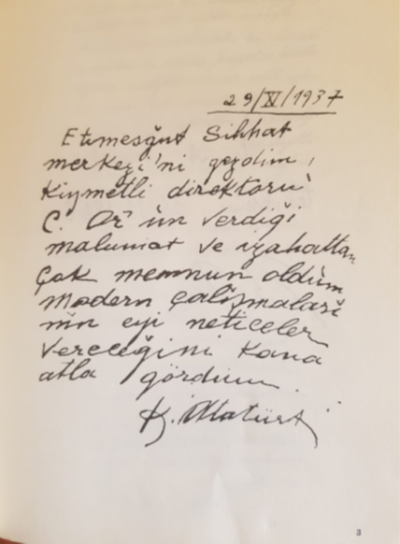 29/XI/1937
Etimesğut Sihhat
merkezi'ni gezdim,
Kıymetli direktörü
C. Or'ün verdiği
malumat ve izahattan
çok memnun oldum
modern çalışmaları
nın eyi neticeler
vereceğini kana
atla gördüm.
K. Atatürk
3